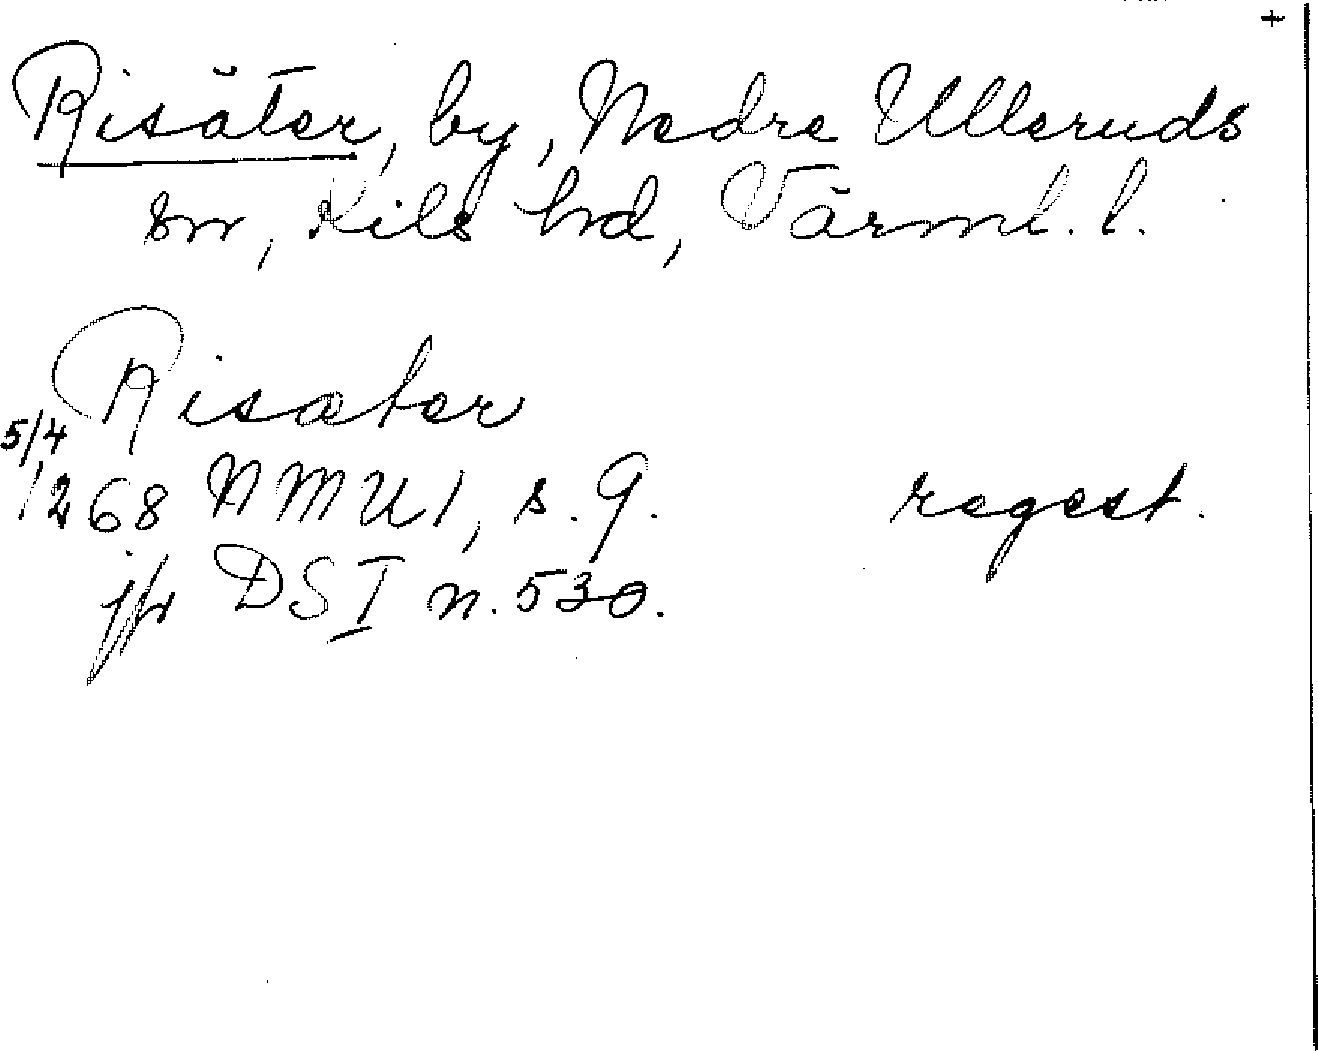 +
Risäter, by, Nedre Ulleruds
sn, Kils hd, Värml. l.
Risæter
5/4
1268 NMU 1, s. 9. regest.
jfr DS I n. 530.